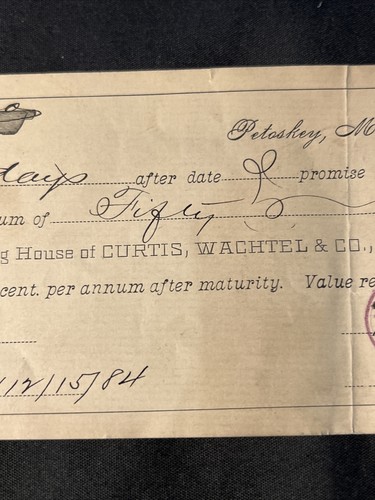 Petoskey, M
days after date I promise
um of Fifty
g House of CURTIS, WACHTEL & CO.,
cent. per annum after maturity. Value re
12/15/84